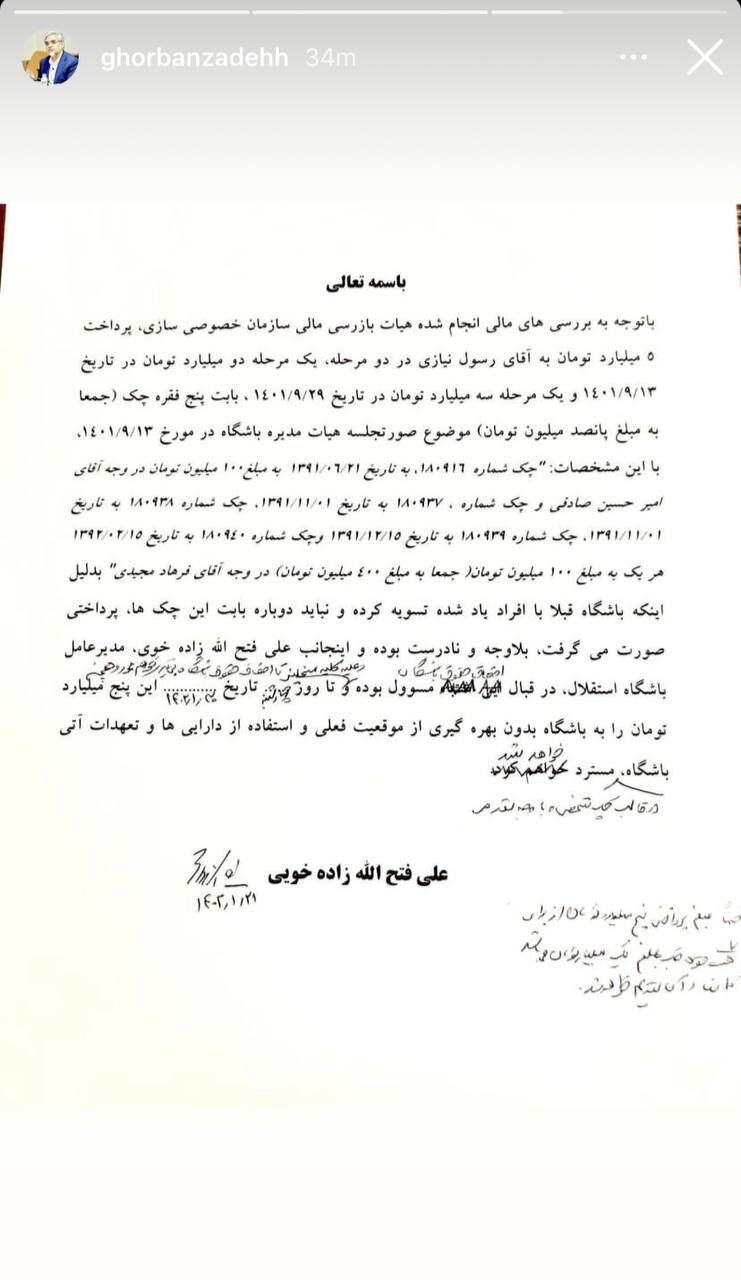 ghorbanzadehh 34m
باسمه تعالی
باتوجه به بررسی های مالی انجام شده هیات بازرسی مالی سازمان خصوصی سازی، پرداخت
۵ میلیارد تومان به آقای رسول نیازی در دو مرحله، یک مرحله دو میلیارد تومان در تاریخ
۱۴۰۱/۹/۱۳ و یک مرحله سه میلیارد تومان در تاریخ ۱۴۰۱/۹/۲۹ ، بابت پنج فقره چک (جمعا
به مبلغ پانصد میلیون تومان) موضوع صورتجلسه هیات مدیره باشگاه در مورخ ۱۴۰۱/۹/۱۳،
با این مشخصات: "چک شماره ۱۸۰۹۱۶، به تاریخ ۱۳۹۱/۰۶/۲۱ به مبلغ۱۰۰ میلیون تومان در وجه آقای
امیر حسین صادقی و چک شماره ، ۱۸۰۹۳۷ به تاریخ ۱۳۹۱/۱۱/۰۱، چک شماره ۱۸۰۹۳۸ به تاریخ
۱۳۹۱/۱۱/۰۱، چک شماره ۱۸۰۹۳۹ به تاریخ ۱۳۹۱/۱۲/۱۵ وچک شماره ۱۸۰۹۴۰ به تاریخ ۱۳۹۲/۰۲/۱۵
هر یک به مبلغ ۱۰۰ میلیون تومان( جمعا به مبلغ ۴۰۰ میلیون تومان) در وجه آقای فرهاد مجیدی" بدلیل
اینکه باشگاه قبلا با افراد یاد شده تسویه کرده و نباید دوباره بابت این چک ها، پرداختی
صورت می گرفت، بلاوجه و نادرست بوده و اینجانب علی فتح الله زاده خوی، مدیرعامل
احقاق حقوق باشگاه
باشگاه استقلال، در قبال مسوول بوده و تا روز تاریخ ........... این پنج میلیارد
تومان را به باشگاه بدون بهره گیری از موقعیت فعلی و استفاده از دارایی ها و تعهدات آتی
خواهد شد
باشگاه، مسترد خواهم کرد.
در قالب چک شخصی یا وجه نقد
علی فتح الله زاده خویی
۱۴۰۲/۱/۲۱
مبلغ پرداختی پنج میلیارد تومان از برای
مبلغ یک میلیارد تومان